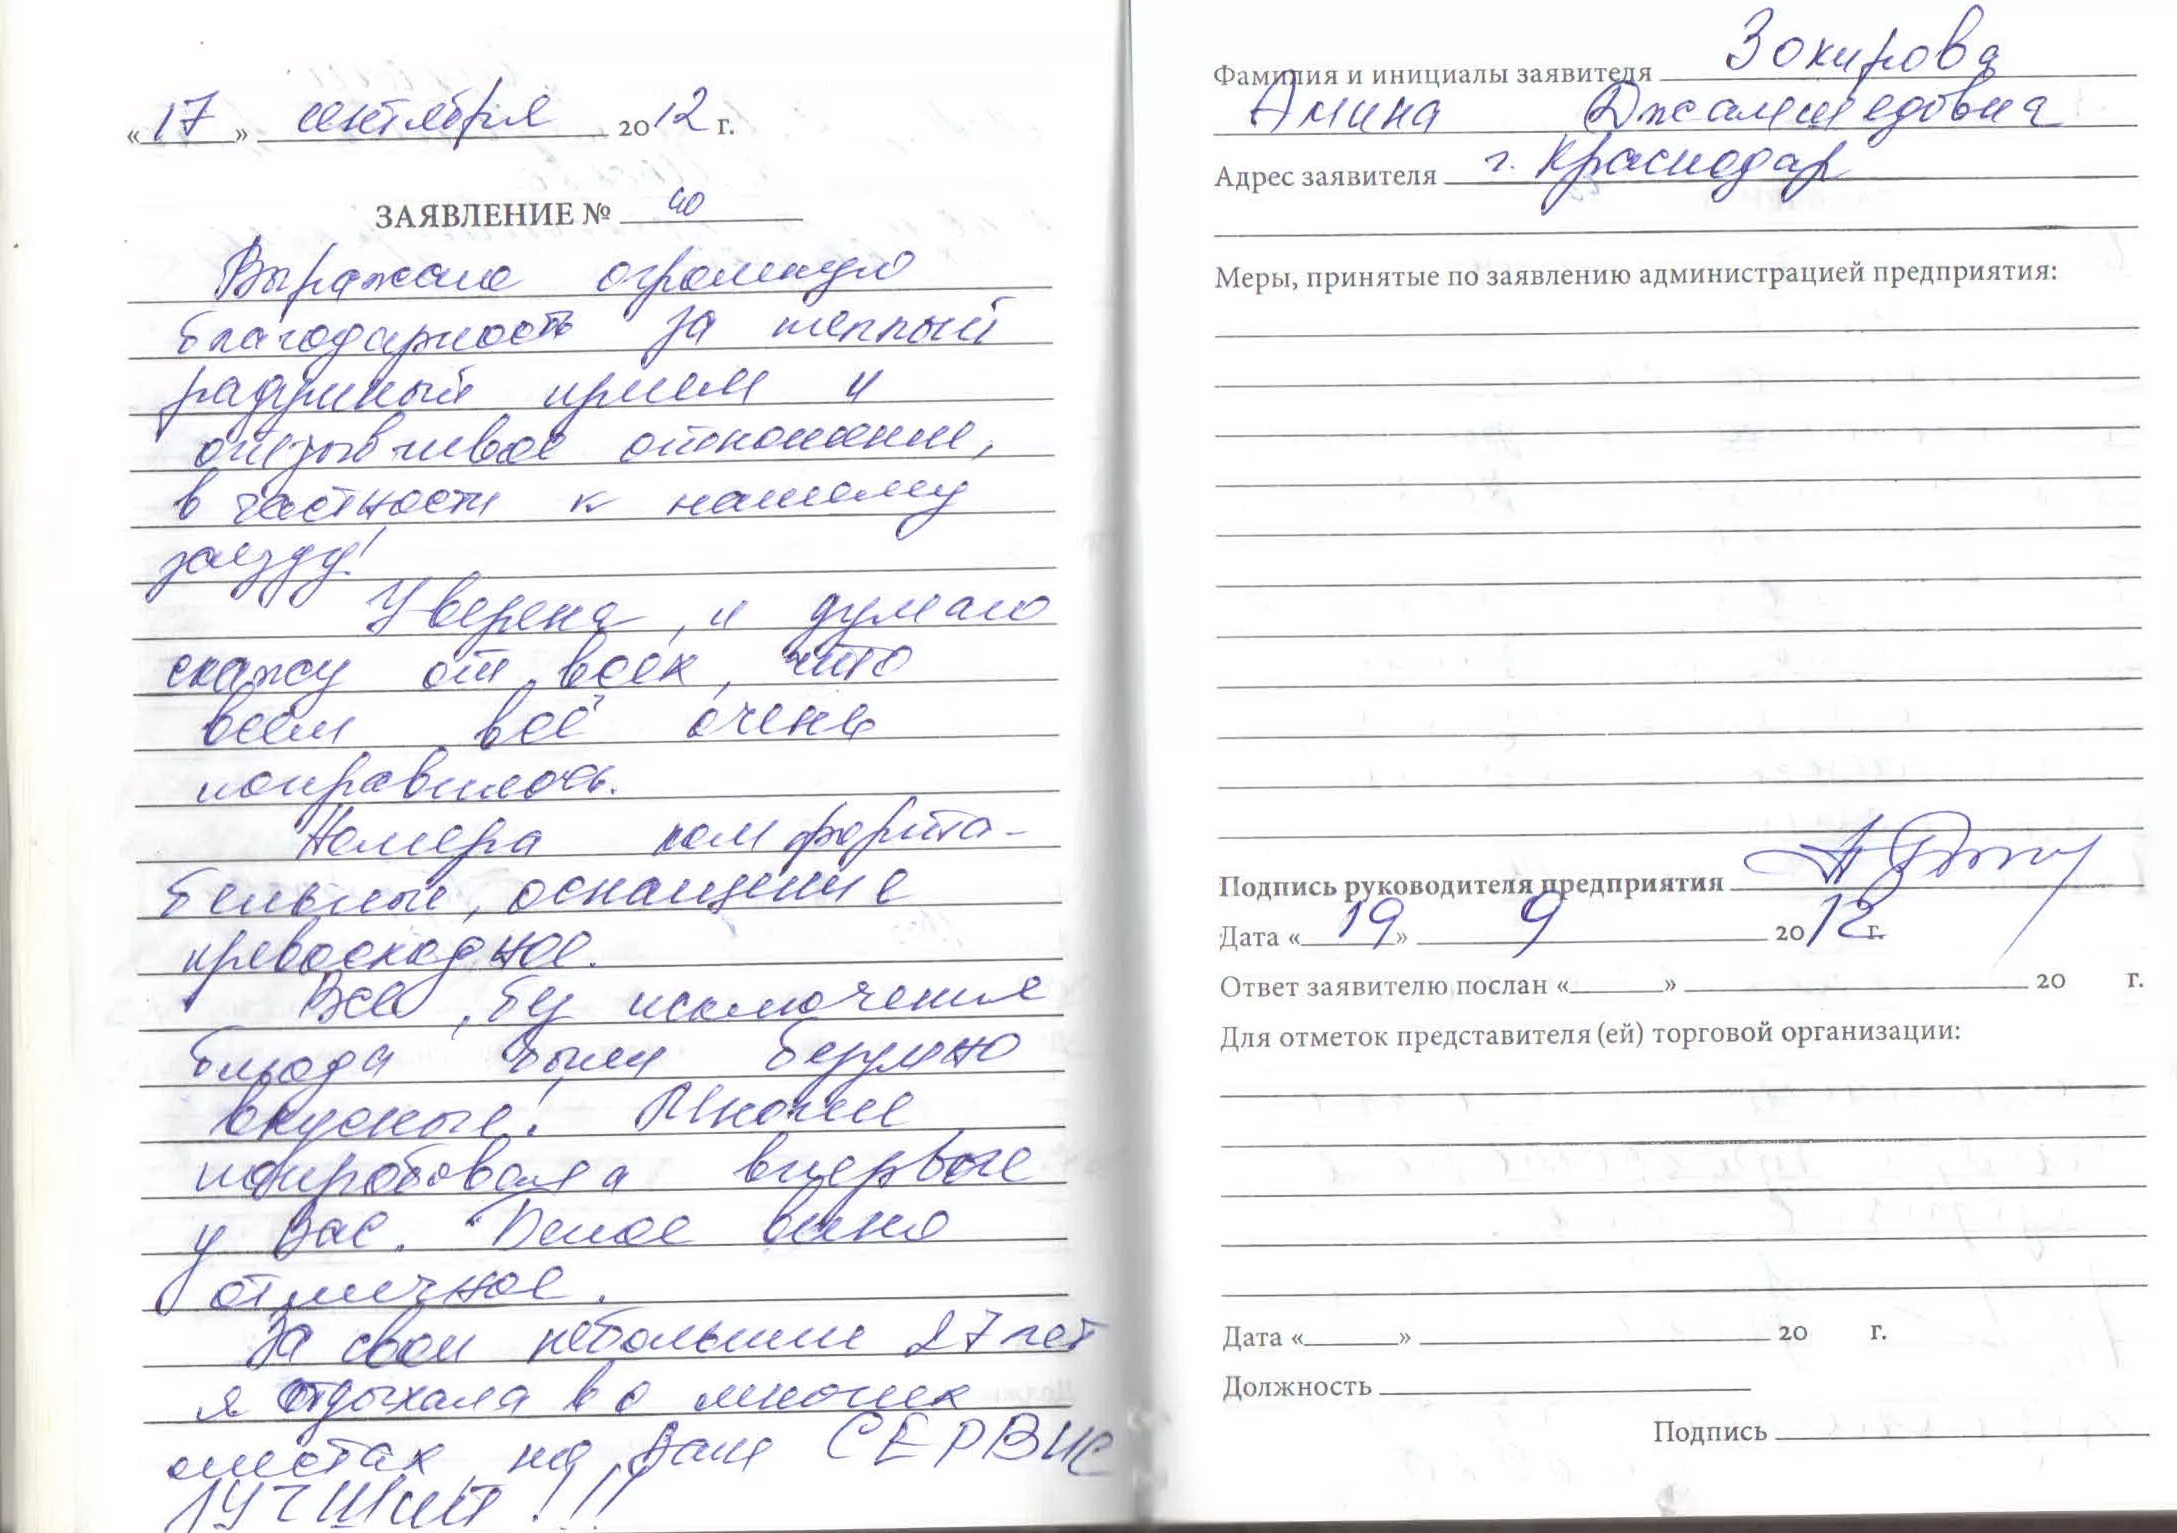 «17» сентября 2012 г.
ЗАЯВЛЕНИЕ № 40
Выражаю огромную
благодарность за теплый
радушный прием и
отзывчивое отношение,
в частности к нашему
заезду!
Уверена, и думаю
скажу от всех, что
всем всё очень
понравилось.
Номера комфорта-
бельные, оснащение
превосходное.
Все, без исключения
блюда были безумно
вкусные! Многие
попробовала впервые
у Вас. Белое вино
отличное.
За свои небольшие 27 лет
я отдыхала во многих
местах, но Ваш СЕРВИС
ЛУЧШИЙ!!!
Фамилия и инициалы заявителя Зокирова
Амина Джамшедовна
Адрес заявителя г. Краснодар
Меры, принятые по заявлению администрацией предприятия:
Подпись руководителя предприятия
Дата «19» 9 2012 г.
Ответ заявителю послан «______» ______ 20 г.
Для отметок представителя (ей) торговой организации:
Дата «______» ______ 20 г.
Должность
Подпись